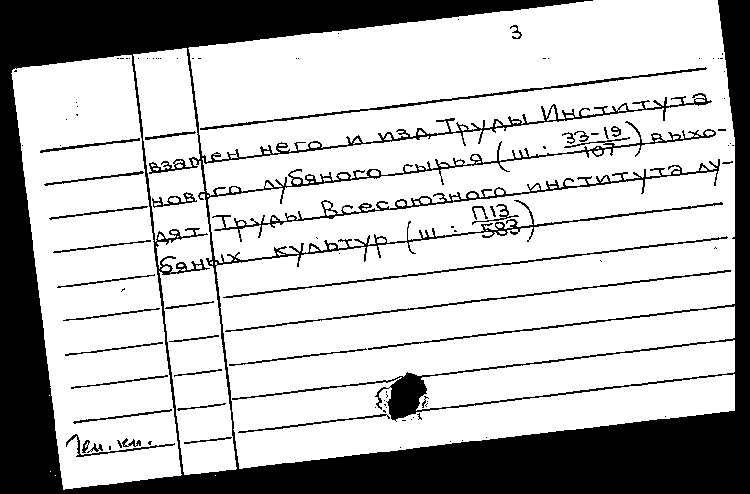 3
взамен него и изд. Труды Института
нового лубяного сырья (ш.: 33-19/107) выхо-
дят Труды Всесоюзного института лу-
бяных культур (ш: П13/583)
Ген. кн.